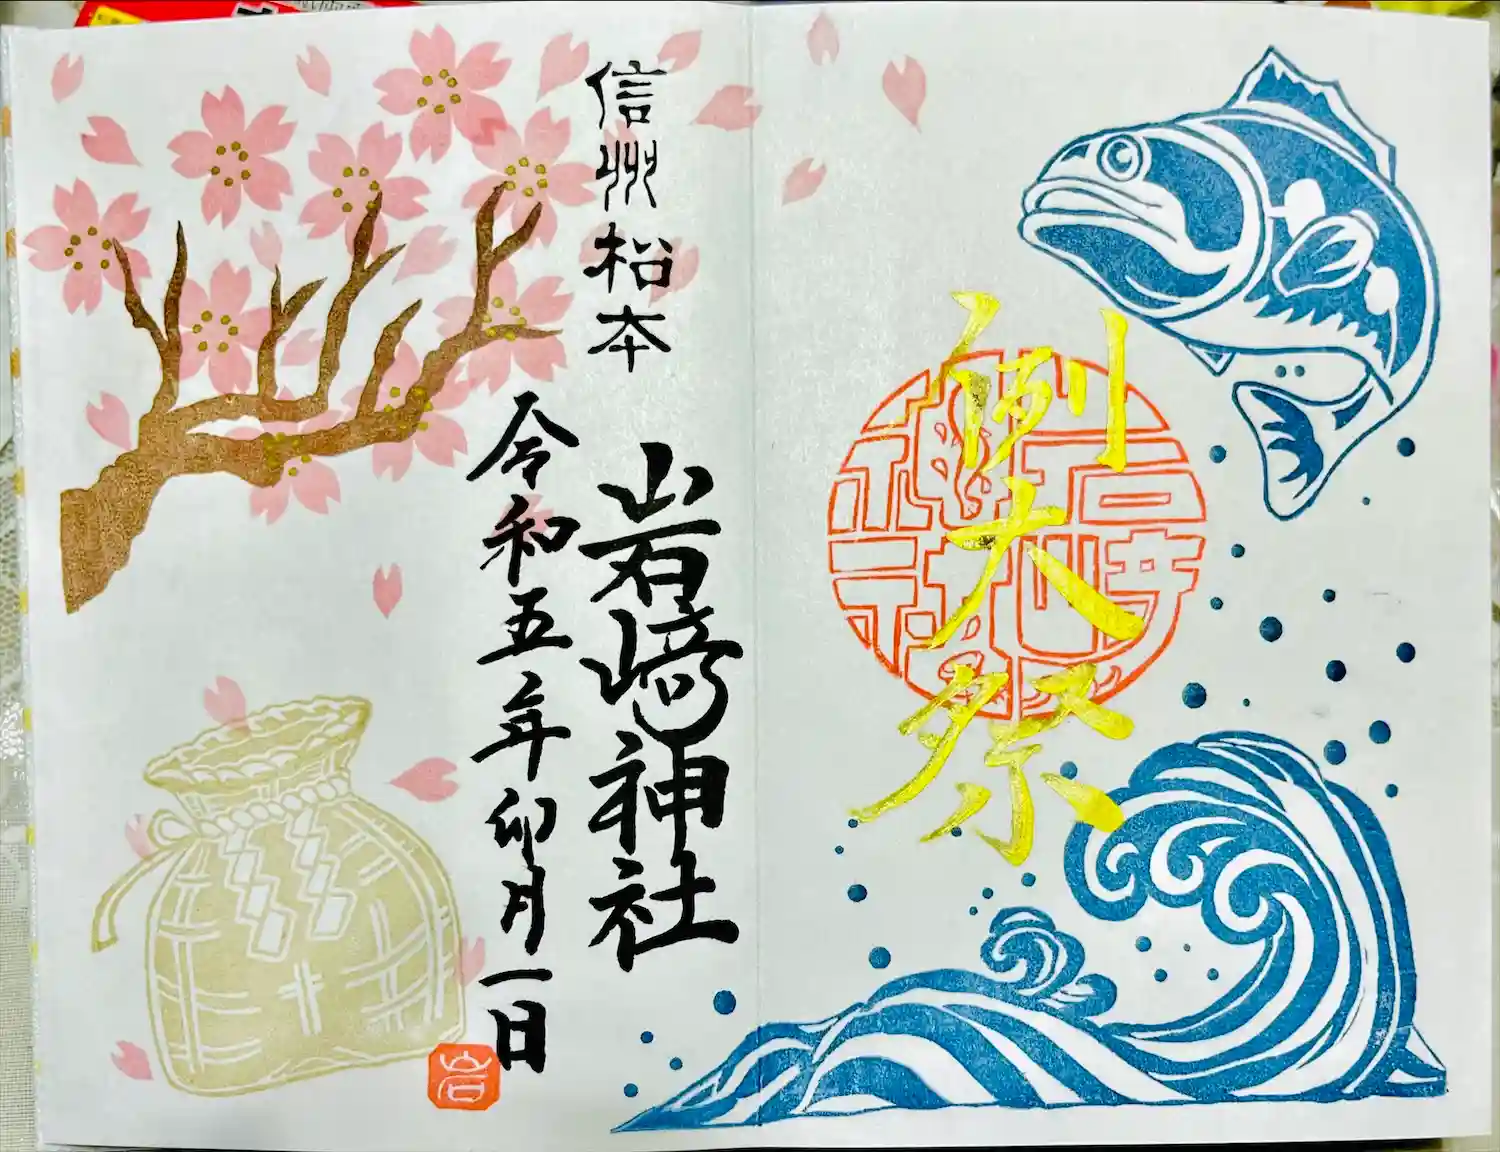 例大祭
岩崎神社
信州松本
岩﨑神社
令和五年卯月一日
岩